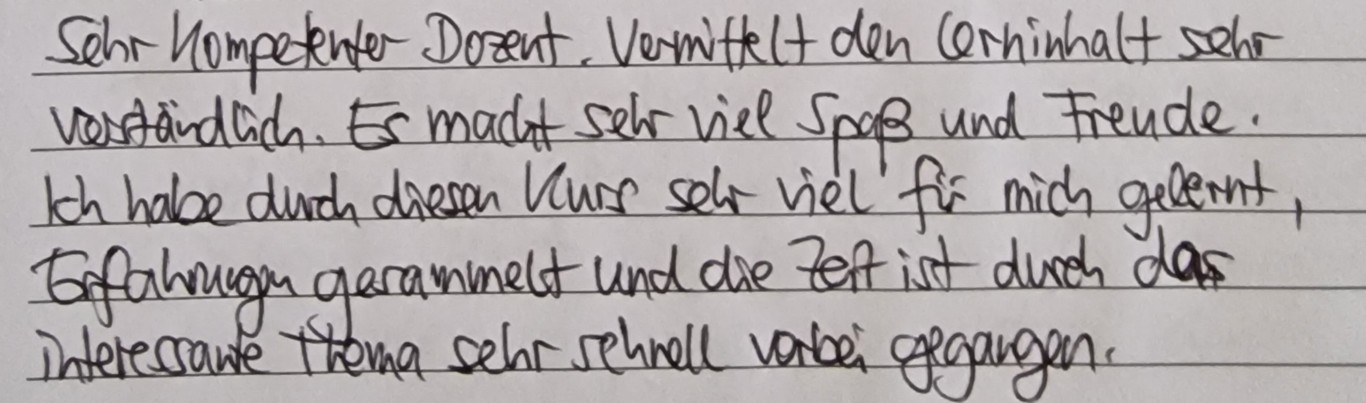 Sehr Kompetenter Dozent. Vermittelt den Lerninhalt sehr
verständlich. Es macht sehr viel Spaß und Freude.
Ich habe durch diesen Kurs sehr viel für mich gelernt,
Erfahrungen gesammelt und die Zeit ist durch das
interessante Thema sehr schnell vorbei gegangen.